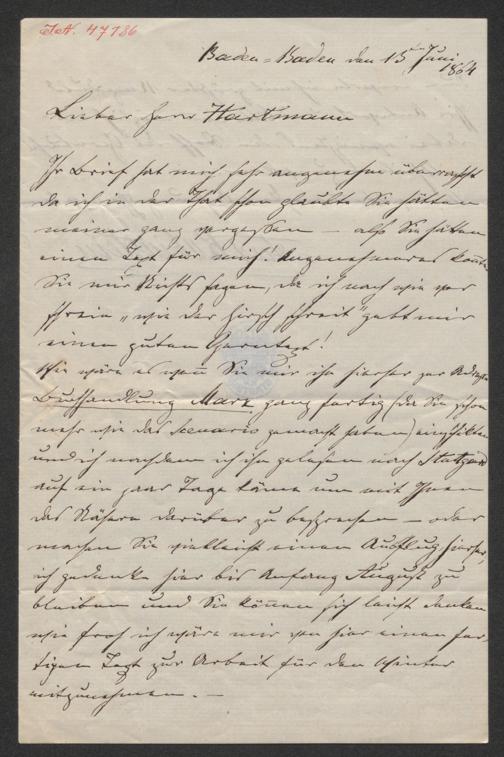 I.N. 47786
Baden-Baden den 15ten Juni
1864
Lieber Herr Hartmann
Ihr Brief hat mich sehr angenehm überrascht
da ich in der That schon glaubte Sie hätten
meiner ganz vergessen – also Sie hätten
einen Text für mich! Angenehmeres konnten
Sie mir Nichts sagen, da ich nach wie vor
schreie „wie der Hirsch schreit" gebt mir
einen guten Operntext!
Wie wäre es wenn Sie mir ihn hierher zur Adresse
Buchhandlung Marx ganz fertig (da Sie schon
mehr wie das Scenario gemacht haben) einschickten
und ich nachdem ich ihn gelesen nach Stuttgard
auf ein paar Tage käme um mit Ihnen
das Nähere darüber zu besprechen – oder
machen Sie vielleicht einen Ausflug hierher,
ich gedenke hier bis Anfang August zu
bleiben und Sie können sich leicht denken
wie froh ich wäre mir von hier einen fer-
tigen Text zur Arbeit für den Winter
mitzunehmen. –